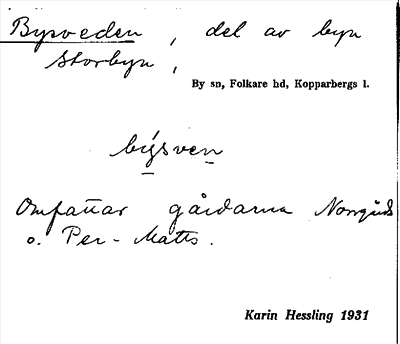 Bysveden, del av byn
Storbyn,
By sn, Folkare hd, Kopparbergs l.
býsven
Omfattar gårdarna
o. Per-Matts.
Karin Hessling 1931